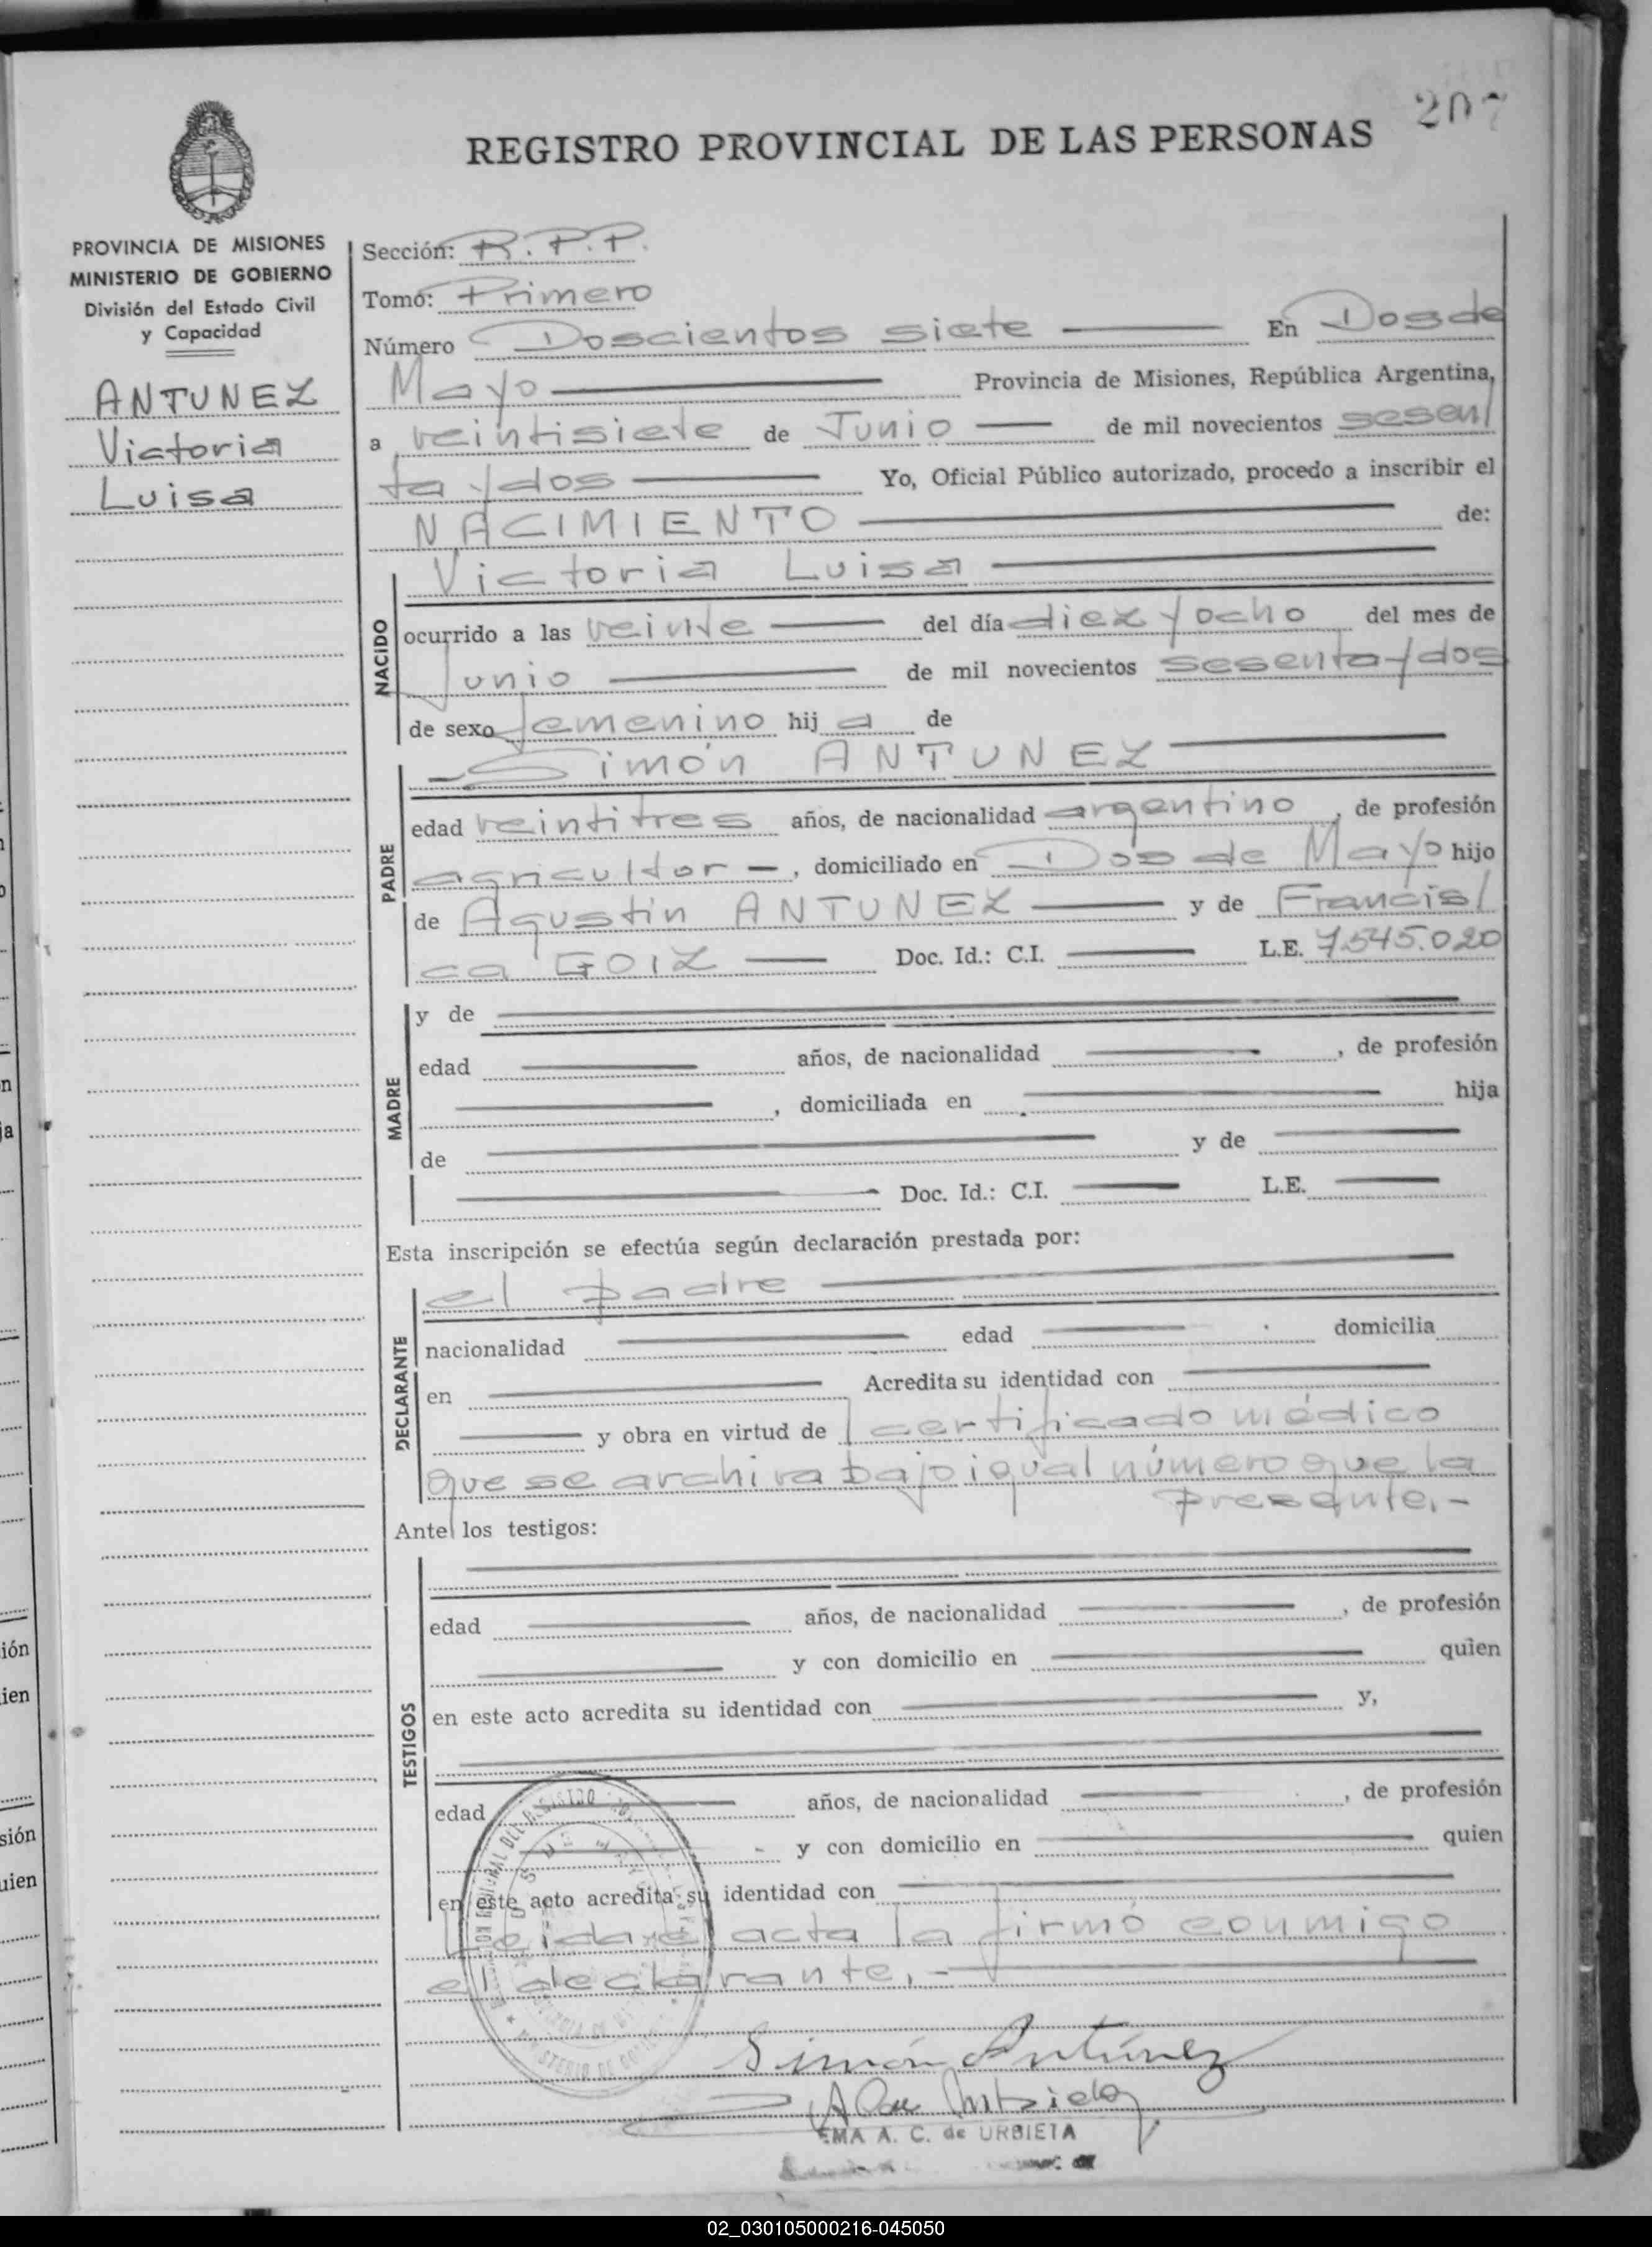 207
REGISTRO PROVINCIAL DE LAS PERSONAS
PROVINCIA DE MISIONES
MINISTERIO DE GOBIERNO
División del Estado Civil
y Capacidad
ANTUNEZ
Victoria
Luisa
Sección: R.P.P.
Tomo: Primero
Número Doscientos siete En Dos de
Mayo Provincia de Misiones, República Argentina,
a veintisiete de Junio de mil novecientos sesen/
ta y dos Yo, Oficial Público autorizado, procedo a inscribir el
NACIMIENTO de:
NACIDO
Victoria Luisa
ocurrido a las veinte del día diez y ocho del mes de
Junio de mil novecientos sesenta y dos
de sexo femenino hij a de
PADRE
Simón ANTUNEZ
edad veintitres años, de nacionalidad argentino, de profesión
agricultor —, domiciliado en Dos de Mayo hijo
de Agustín ANTUNEZ y de Francis/
ca GOIZ Doc. Id.: C.I. L.E. 7.545.020
MADRE
y de
edad años, de nacionalidad , de profesión
, domiciliada en hija
de y de
Doc. Id.: C.I. L.E.
Esta inscripción se efectúa según declaración prestada por:
DECLARANTE
el padre
nacionalidad edad domicilia
en Acredita su identidad con
y obra en virtud de certificado médico
que se archiva bajo igual número que la
presente.-
Ante los testigos:
TESTIGOS
edad años, de nacionalidad , de profesión
y con domicilio en quien
en este acto acredita su identidad con y,
edad años, de nacionalidad , de profesión
y con domicilio en quien
en este acto acredita su identidad con
Leida el acta la firmó conmigo
el declarante.-
Simón Antúnez
EMA A. C. de URBIETA
02_030105000216-045050